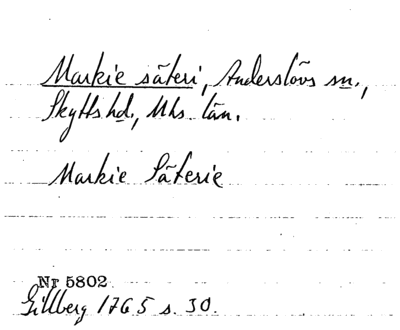 Markie säteri, Anderslövs sn.,
Skytts hd., Mhs. län.
Markie Säterie
Nr 5802
Gillberg 1765 s. 30.